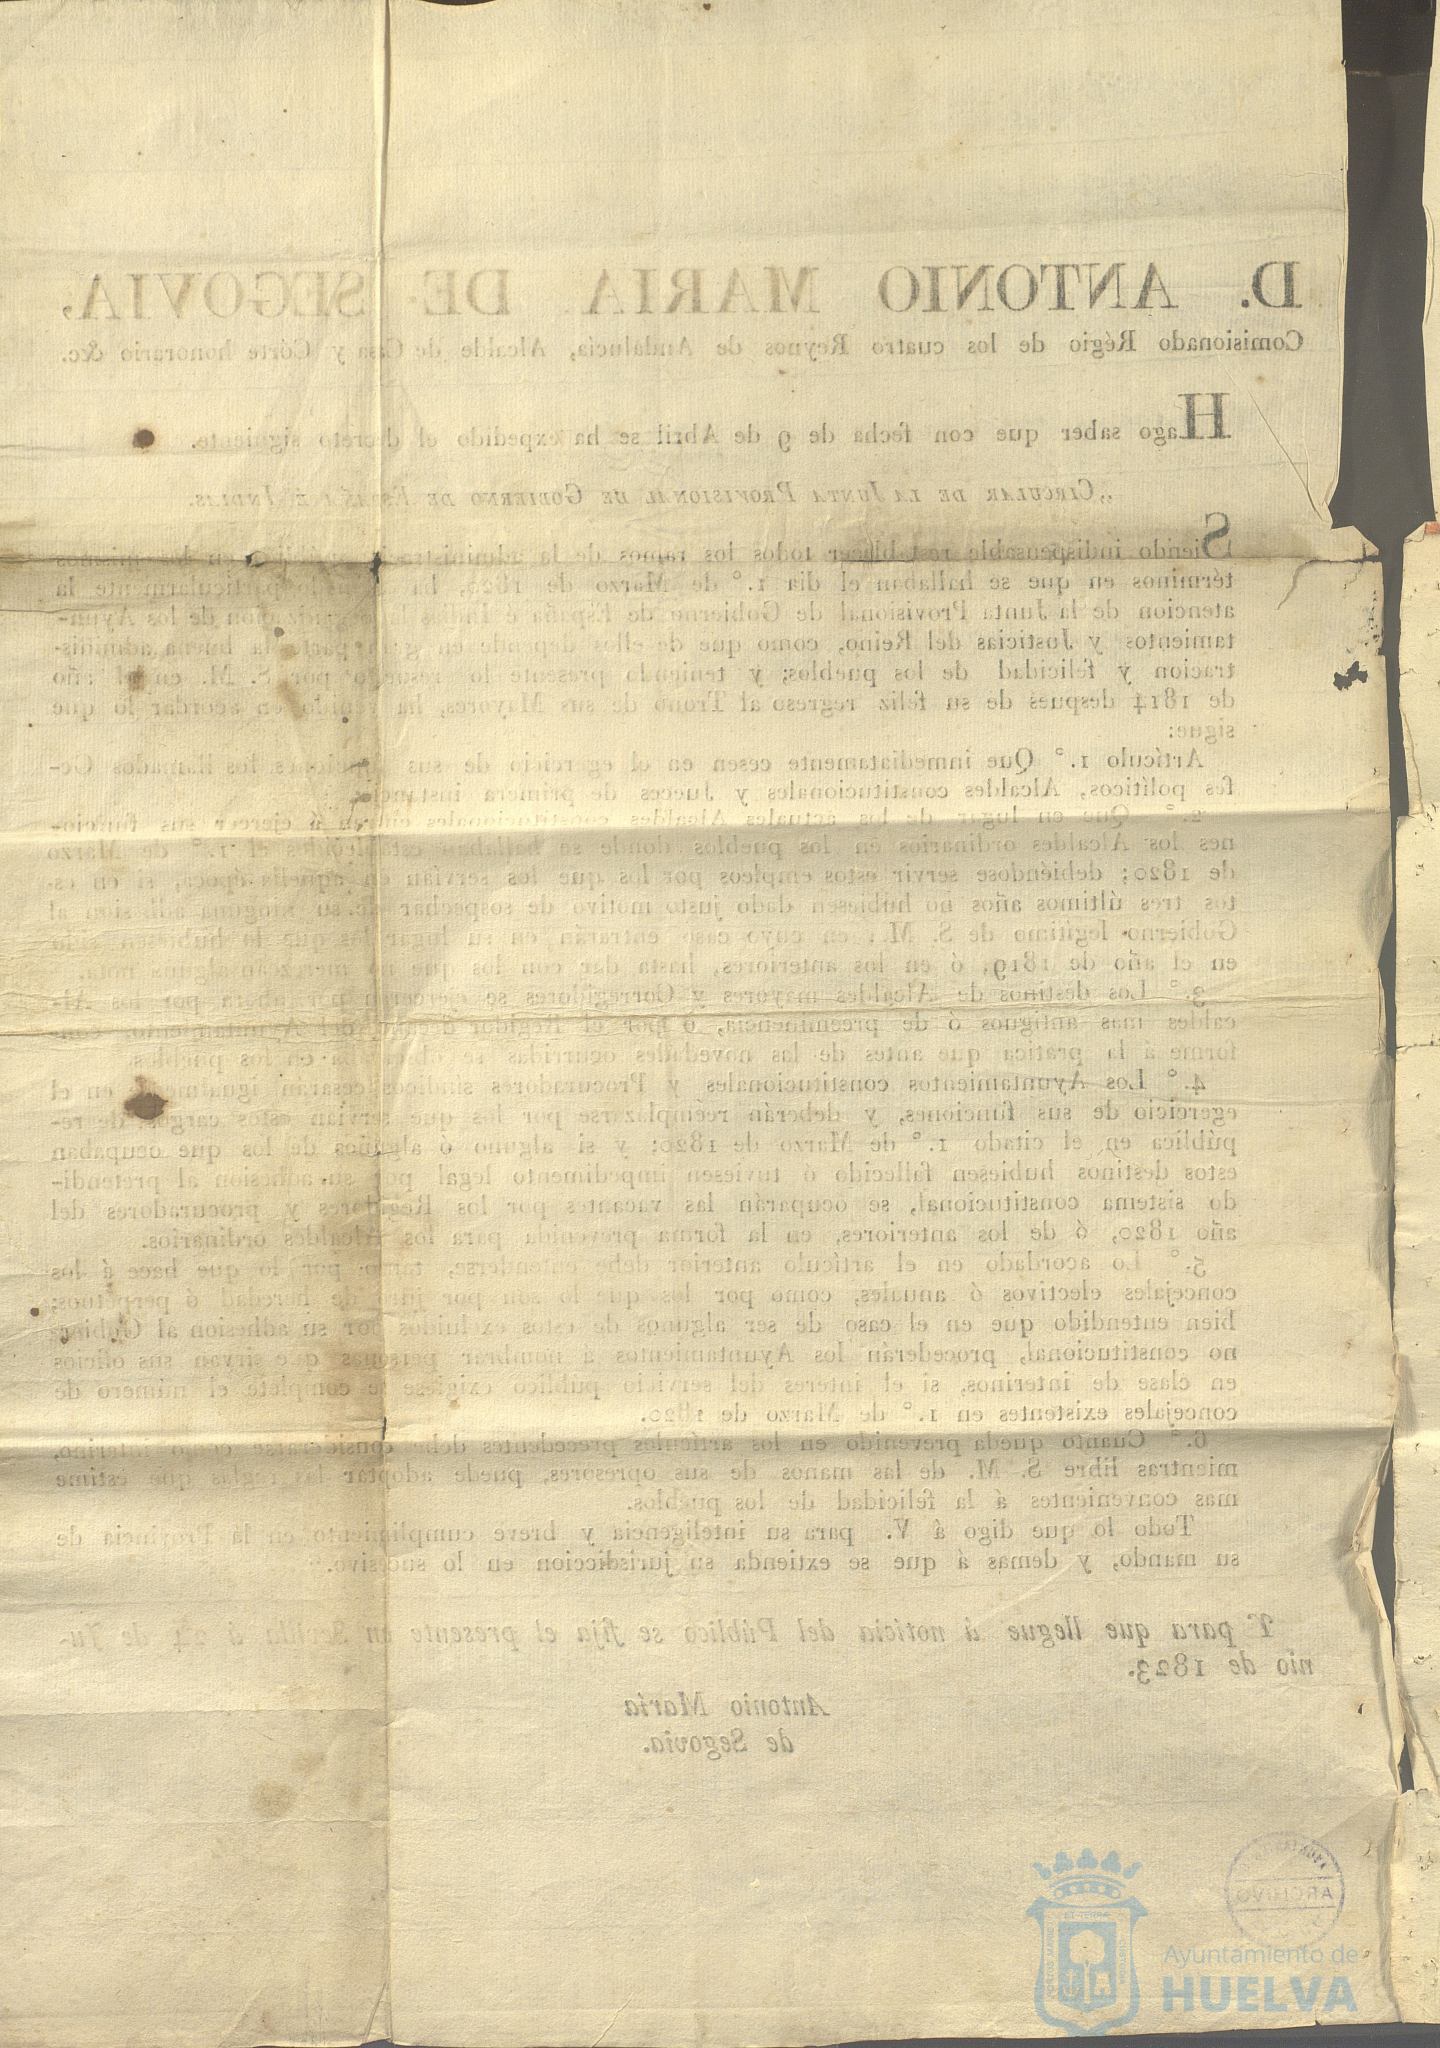 D. ANTONIO MARIA DE SEGOVIA,
Comisionado Régio de los cuatro Reynos de Andalucía, Alcalde de Casa y Córte honorario &c.
Hago saber que con fecha de 9 de Abril se ha expedido el decreto siguiente.
„CIRCULAR DE LA JUNTA PROVISIONAL DE GOBIERNO DE ESPAÑA É INDIAS.
Siendo indispensable restablecer todos los ramos de la administracion pública en los mismos
términos en que se hallaban el dia 1.° de Marzo de 1820, ha particularmente la
atencion de la Junta Provisional de Gobierno de España é Indias la organizacion de los Ayun-
tamientos y Justicias del Reino, como que de ellos depende en gran parte la buena adminis-
tracion y felicidad de los pueblos; y teniendo presente lo resuelto por S. M. en el año
de 1814 despues de su feliz regreso al Trono de sus Mayores, ha venido en acordar lo que
sigue:
Artículo 1.° Que inmediatamente cesen en el egercicio de sus funciones los llamados Ge-
fes políticos, Alcaldes constitucionales y Jueces de primera instancia.
2.° Que en lugar de los actuales Alcaldes constitucionales entren á ejercer sus funcio-
nes los Alcaldes ordinarios en los pueblos donde se hallaban establecidos el 1.° de Marzo
de 1820; debiéndose servir estos empleos por los que los servian en aquella época, si en es-
tos tres últimos años no hubiesen dado justo motivo de sospechar de su ninguna adhesion al
Gobierno legítimo de S. M. en cuyo caso entrarán en su lugar los que lo hubiesen sido
en el año de 1819, ó en los anteriores, hasta dar con los que no merezcan alguna nota.
3.° Los destinos de Alcaldes mayores y Corregidores se ejercerán por ahora por los Al-
caldes mas antiguos ó de preeminencia, ó por el Regidor decano del Ayuntamiento, con-
forme á la prática que antes de las novedades ocurridas se observaba en los pueblos.
4.° Los Ayuntamientos constitucionales y Procuradores síndicos cesarán igualmente en el
egercicio de sus funciones, y deberán reemplazarse por los que servian estos cargos de re-
pública en el citado 1.° de Marzo de 1820; y si alguno ó algunos de los que ocupaban
estos destinos hubiesen fallecido ó tuviesen impedimento legal por su adhesion al pretendi-
do sistema constitucional, se ocuparán las vacantes por los Regidores y procuradores del
año 1820, ó de los anteriores, en la forma prevenida para los Alcaldes ordinarios.
5.° Lo acordado en el artículo anterior debe entenderse, tanto por lo que hace á los
concejales electivos ó anuales, como por los que lo son por juro de heredad ó perpétuos;
bien entendido que en el caso de ser algunos de estos excluidos por su adhesion al Gobier-
no constitucional, procederán los Ayuntamientos á nombrar personas que sirvan sus oficios
en clase de interinos, si el interes del servicio público exigiese se complete el número de
concejales existentes en 1.° de Marzo de 1820.
6.° Cuanto queda prevenido en los artículos precedentes debe considerarse como interino,
mientras libre S. M. de las manos de sus opresores, puede adoptar las reglas que estime
mas convenientes á la felicidad de los pueblos.
Todo lo que digo á V. para su inteligencia y breve cumplimiento en la Provincia de
su mando, y demas á que se extienda su jurisdiccion en lo sucesivo.
Y para que llegue á noticia del Público se fija el presente en Sevilla á 24 de Ju-
nio de 1823.
Antonio María
de Segovia.
ARCHIVO
Ayuntamiento de
HUELVA